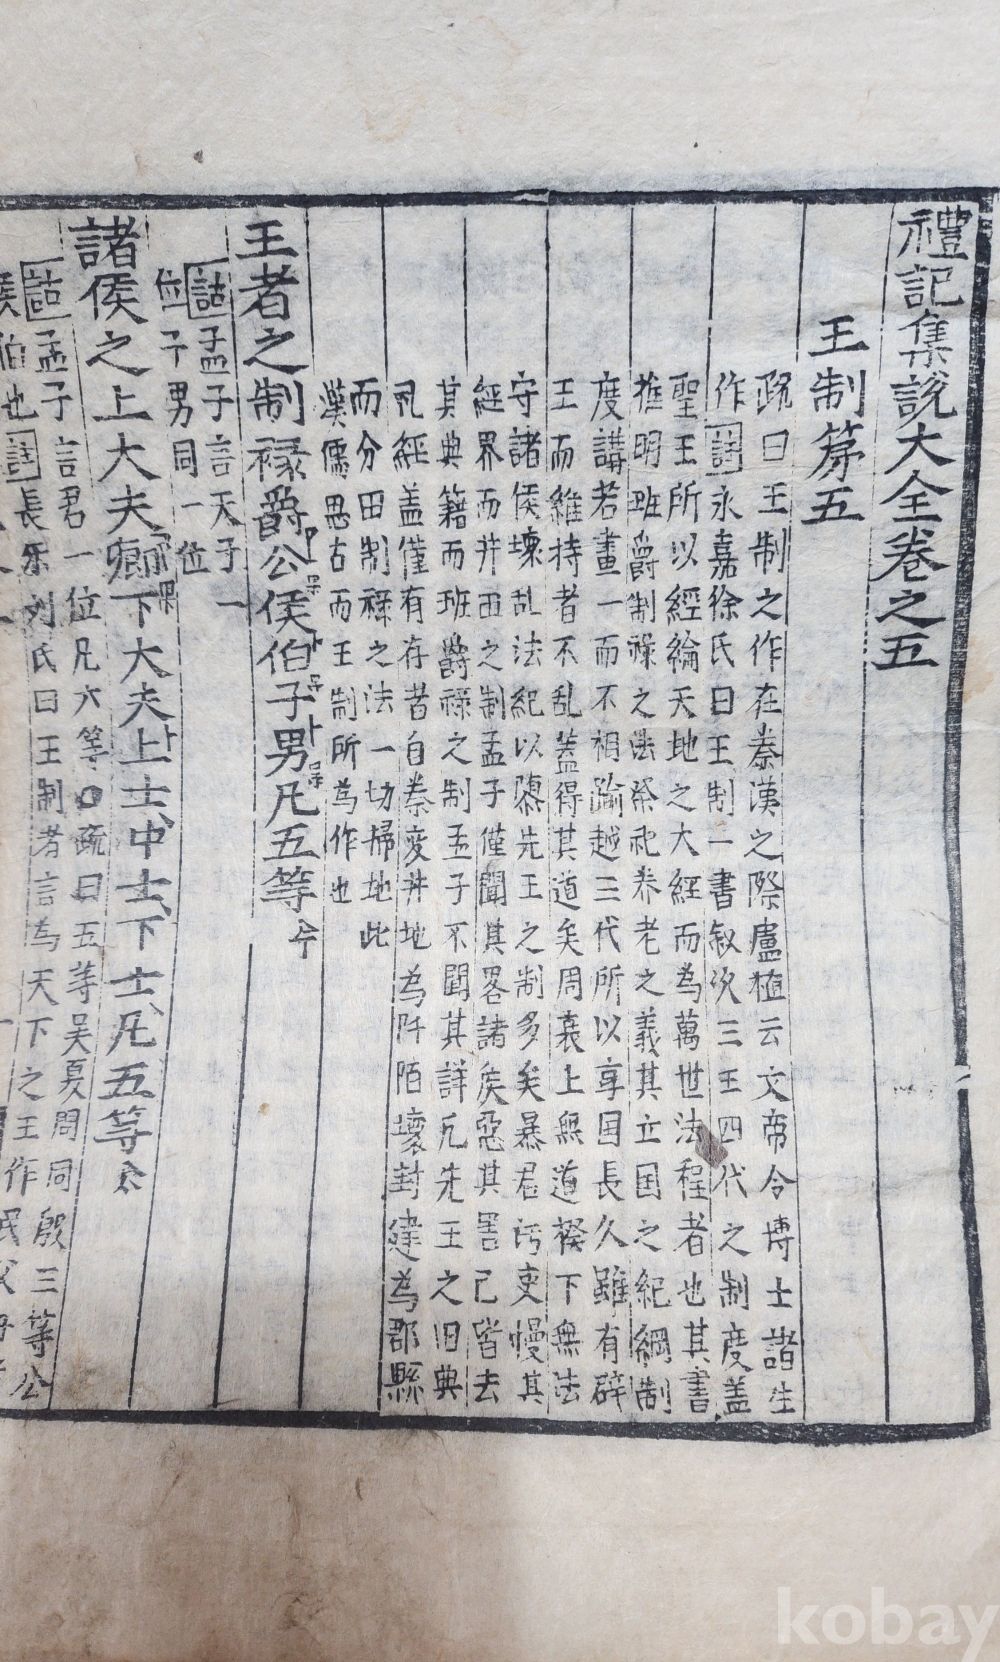 禮記集說大全卷之五
王制第五
疏曰王制之作在秦漢之際盧植云文帝令博士諸生
作註永嘉徐氏曰王制一書叙次三王四代之制度盖
聖王所以經綸天地之大經而為萬世法程者也其書
推明班爵制祿之法祭祀养老之義其立国之紀綱制
度講若畫一而不相踰越三代所以享国長久雖有辟
王而維持者不乱蓋得其道矣周衰上無道揆下無法
守諸侯壞乱法紀以隳先王之制多矣暴君污吏慢其
經界而井田之制孟子僅聞其畧諸侯惡其害己皆去
其典籍而班爵祿之制孟子不聞其詳凢先王之旧典
礼經盖僅有存者自秦变井地為阡陌壞封建為郡縣
而分田制祿之法一切掃地此
漢儒思古而王制所為作也
王者之制禄爵公侯伯子男凡五等
註孟子言天子一
位子男同一位
諸侯之上大夫卿下大夫上士中士下士凡五等
註孟子言君一位凡六等○疏曰五等吴夏問同殷三等公
侯伯也註長乐刘氏曰王制者言為天下之王作民父母
kobay